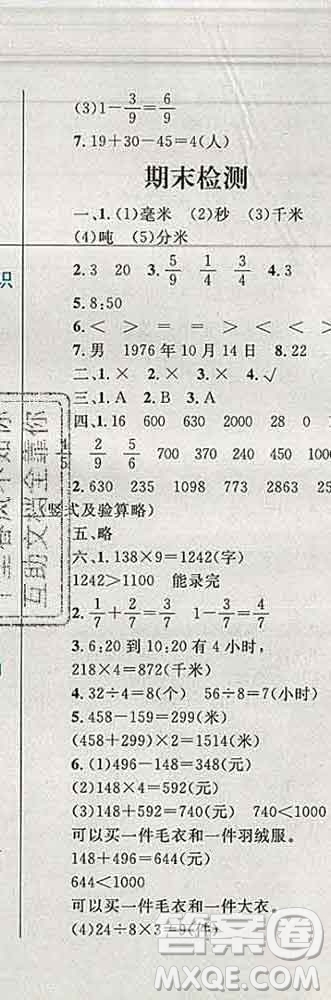 (3)1−3/9=6/9
7. 19+30−45=4(人)
期末检测
一、1. (1)毫米 (2)秒 (3)千米
(4)吨 (5)分米
识
2. 3 20 3. 5/9 1/4 3/4 4. 3
5. 8:50
6. < > = > < < > >
7. 男 1976年10月14日 8. 22
二、1. × 2. × 3. × 4. √
三、1. A 2. B 3. A
四、1. 16 600 630 2000 28 0
4/5 2/9 5/6 700 370 290 640
2. 630 225 1000 238 2535
(竖式及验算略)
五、略
六、1. 138×9=1242(字)
1242>1100 能录完
2. 1/7+2/7=3/7 1−3/7=4/7
3. 6:20到10:20有4小时,
218×4=872(千米)
4. 32÷4=8(个) 56÷8=7(小时)
5. 458−159=299(米)
(458+299)×2=1514(米)
6. (1)496−148=348(元)
(2)148×4=592(元)
(3)148+592=740(元) 740<1000
可以买一件毛衣和一件羽绒服。
148+496=644(元)
644<1000
可以买一件毛衣和一件大衣。
(4)24÷8×3=9(件)
互助文档全靠你
答案圈
MXQE.COM